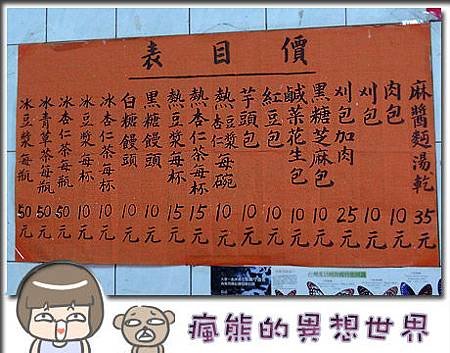 價目表
麻醬麵湯乾 35元
肉包 10元
刈包 10元
刈包加肉 25元
黑糖芝麻包 10元
鹹菜花生包 10元
紅豆包 10元
芋頭包 10元
熱豆漿杏仁每碗 10元
熱杏仁茶每杯 15元
熱豆漿每杯 15元
黑糖饅頭 10元
白糖饅頭 10元
冰杏仁茶每杯 10元
冰豆漿每杯 10元
冰杏仁茶每瓶 50元
冰青草茶每瓶 50元
冰豆漿每瓶 50元
瘋熊的異想世界